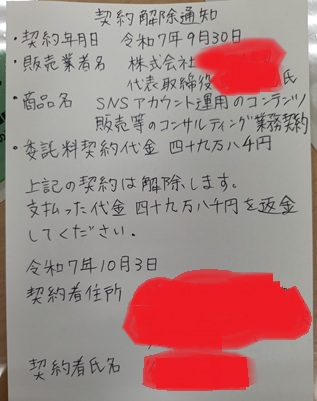 契約解除通知
・契約年月日 令和7年9月30日
・販売業者名 株式会社
代表取締役 氏
・商品名 SNSアカウント運用のコンテンツ
販売等のコンサルティング業務契約
・委託料契約代金 四十九万八千円
上記の契約は解除します。
支払った代金 四十九万八千円を返金
してください。
令和7年10月3日
契約者住所
契約者氏名